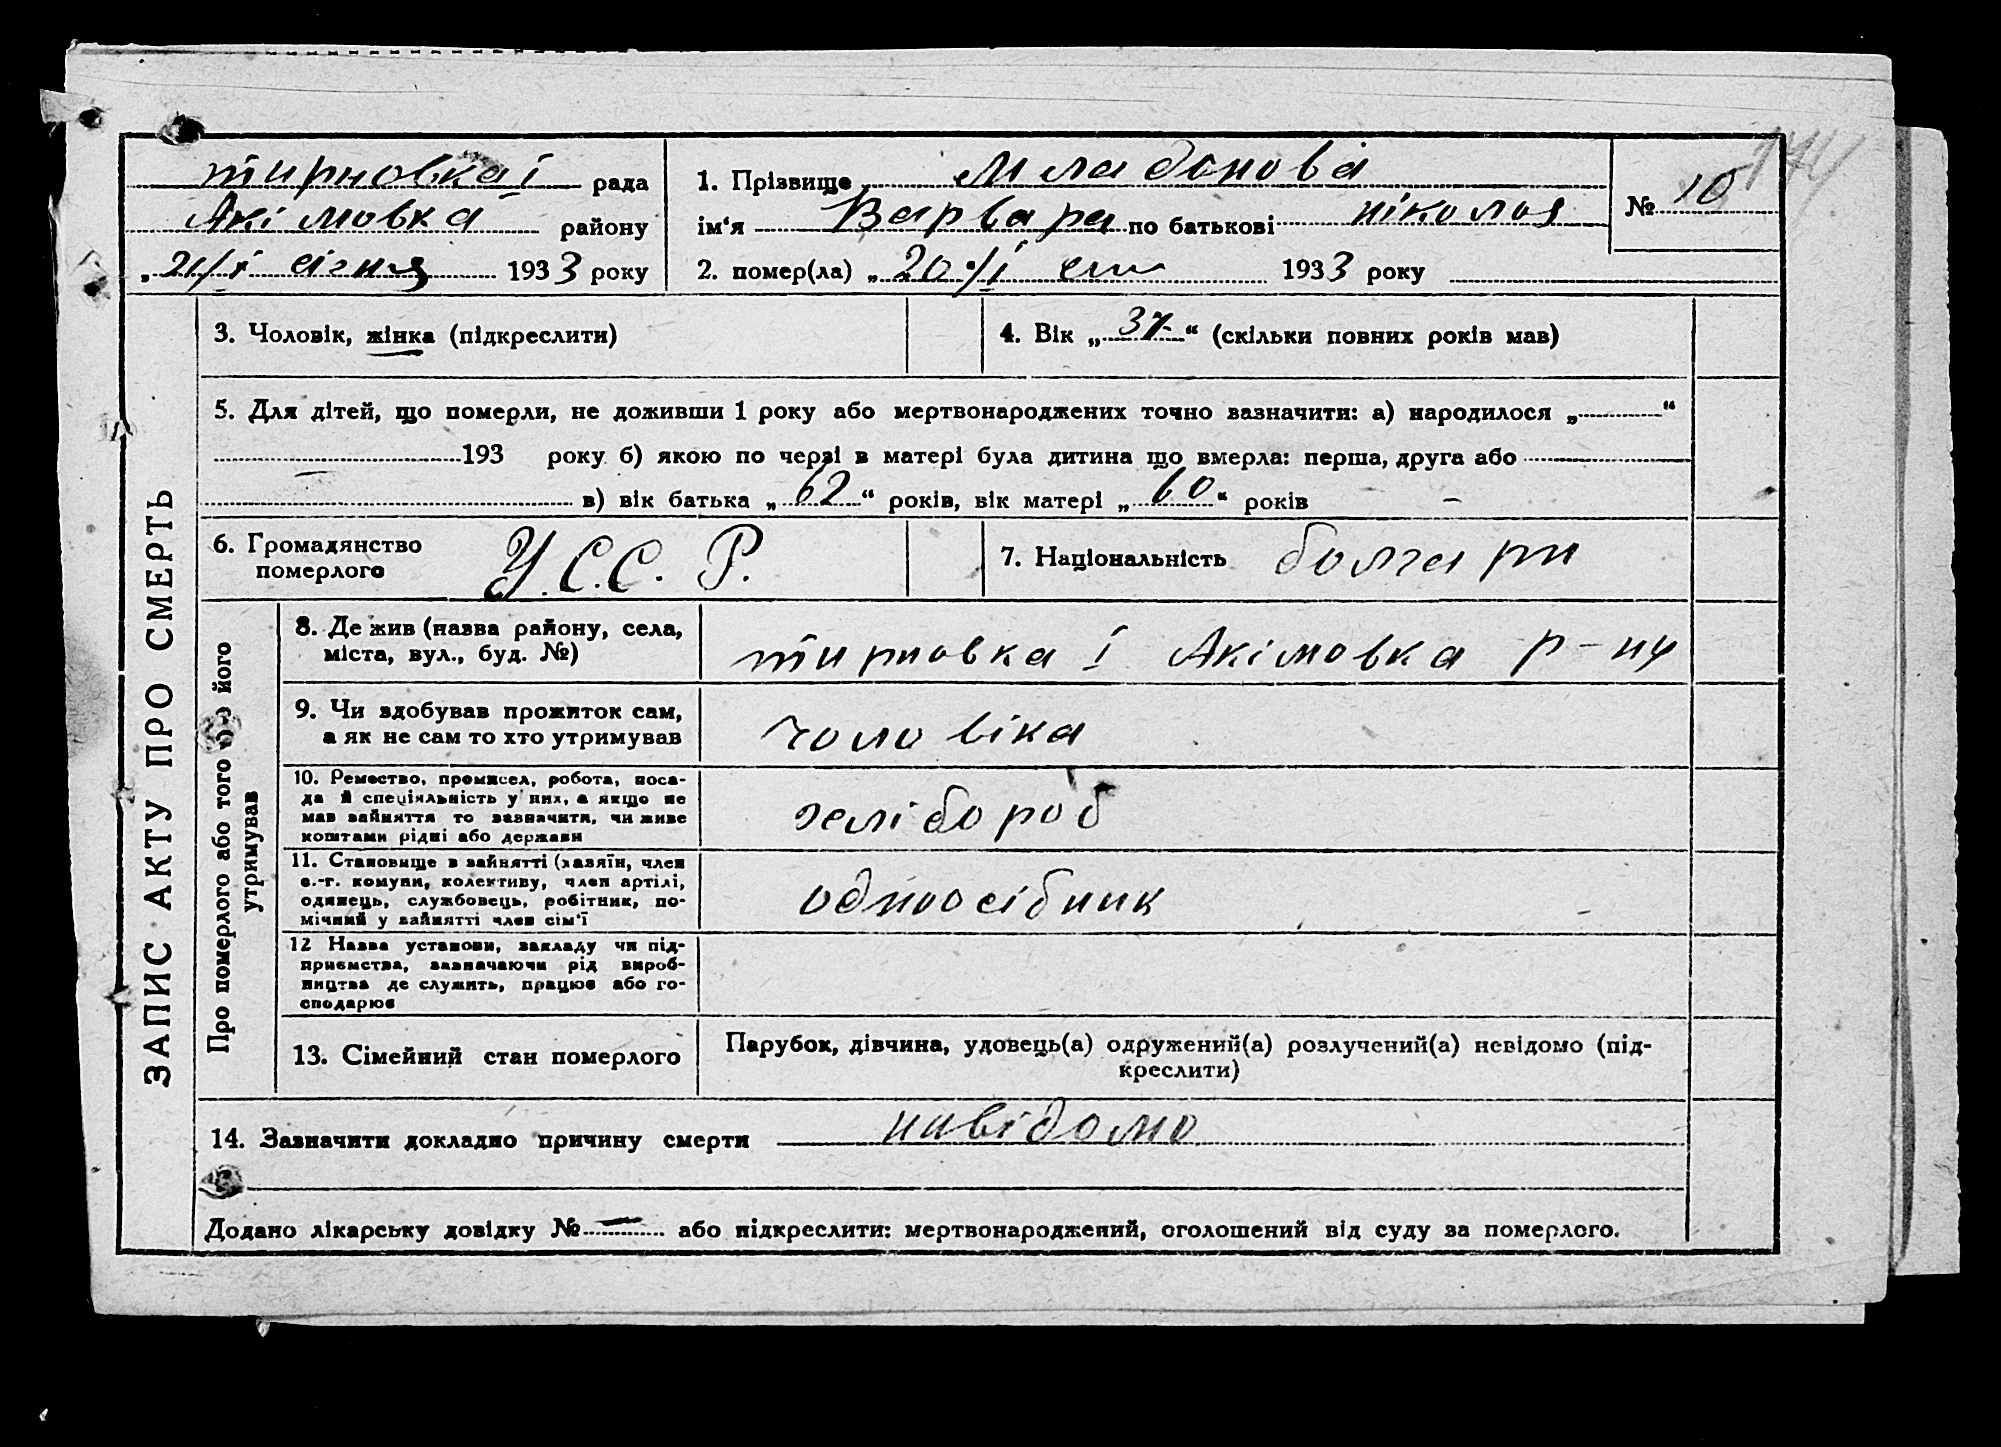 174
тирновка і рада
Акімовка району
„ 21/I січня 1933 року
1. Прізвище Младонова
ім‘я Варвара по батькові ніколоя
№ 10
2. помер(ла) „ 20/I січ 1933 року
ЗАПИС АКТУ ПРО СМЕРТЬ
3. Чоловік, жінка (підкреслити)
4. Вік „ 37 “ (скільки повних років мав)
5. Для дітей, що померли, не доживши 1 року або мертвонароджених точно вазначити: а) народилося „ “
193 року б) якою по черзі в матері була дитина що вмерла: перша, друга або
в) вік батька „ 62 “ років, вік матері „ 60 “ років –
6. Громадянство
померлого
У.С.С.Р.
7. Національність болгари
Про померлого або того хто його
утримував
8. Де жив (назва району, села,
міста, вул., буд. №)
тирновка І Акімовка р-ну
9. Чи здобував прожиток сам,
а як не сам то хто утримував
чоловіка
10. Ремество, промисел, робота, поса-
да й спеціяльність у них, а якщо не
мав вайняття то вазначити, чи живе
коштами рідні або держави
хлібороб
11. Становище в вайнятті (хазяїн, член
с.-г. комуни, колективу, член артілі,
одинець, службовець, робітник, по-
мічний у вайнятті член сім‘ї
одноосібник
12 Назва установи, закладу чи під-
приємства, вазначаючи рід вироб-
ництва де служить, працює або го-
сподарює
13. Сімейний стан померлого
Парубок, дівчина, удовець(а) одружений(а) розлучений(а) невідомо (під-
креслити)
14. Зазначити докладно причину смерти нивідомо
Додано лікарську довідку № — або підкреслити: мертвонароджений, оголошений від суду за померлого.